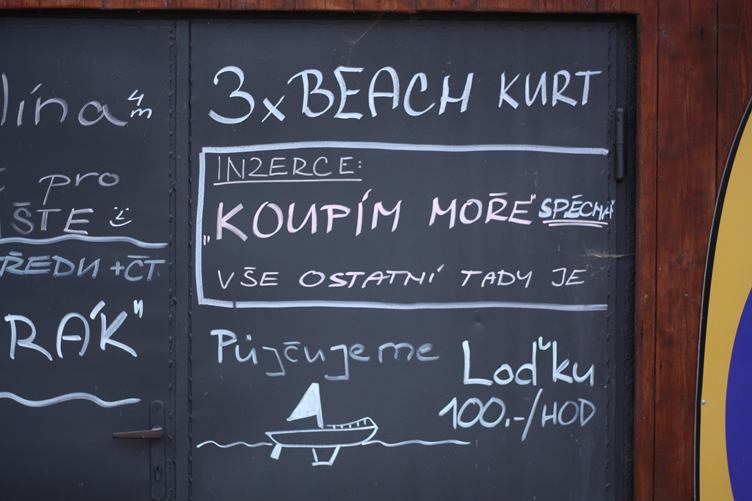 lína 4m
pro
ŠTE
ŘEDU + ČT
RÁK"
3x BEACH KURT
INZERCE:
„KOUPÍM MOŘE" SPĚCHÁ
VŠE OSTATNÍ TADY JE
Půjčujeme Loďku
100.-/HOD